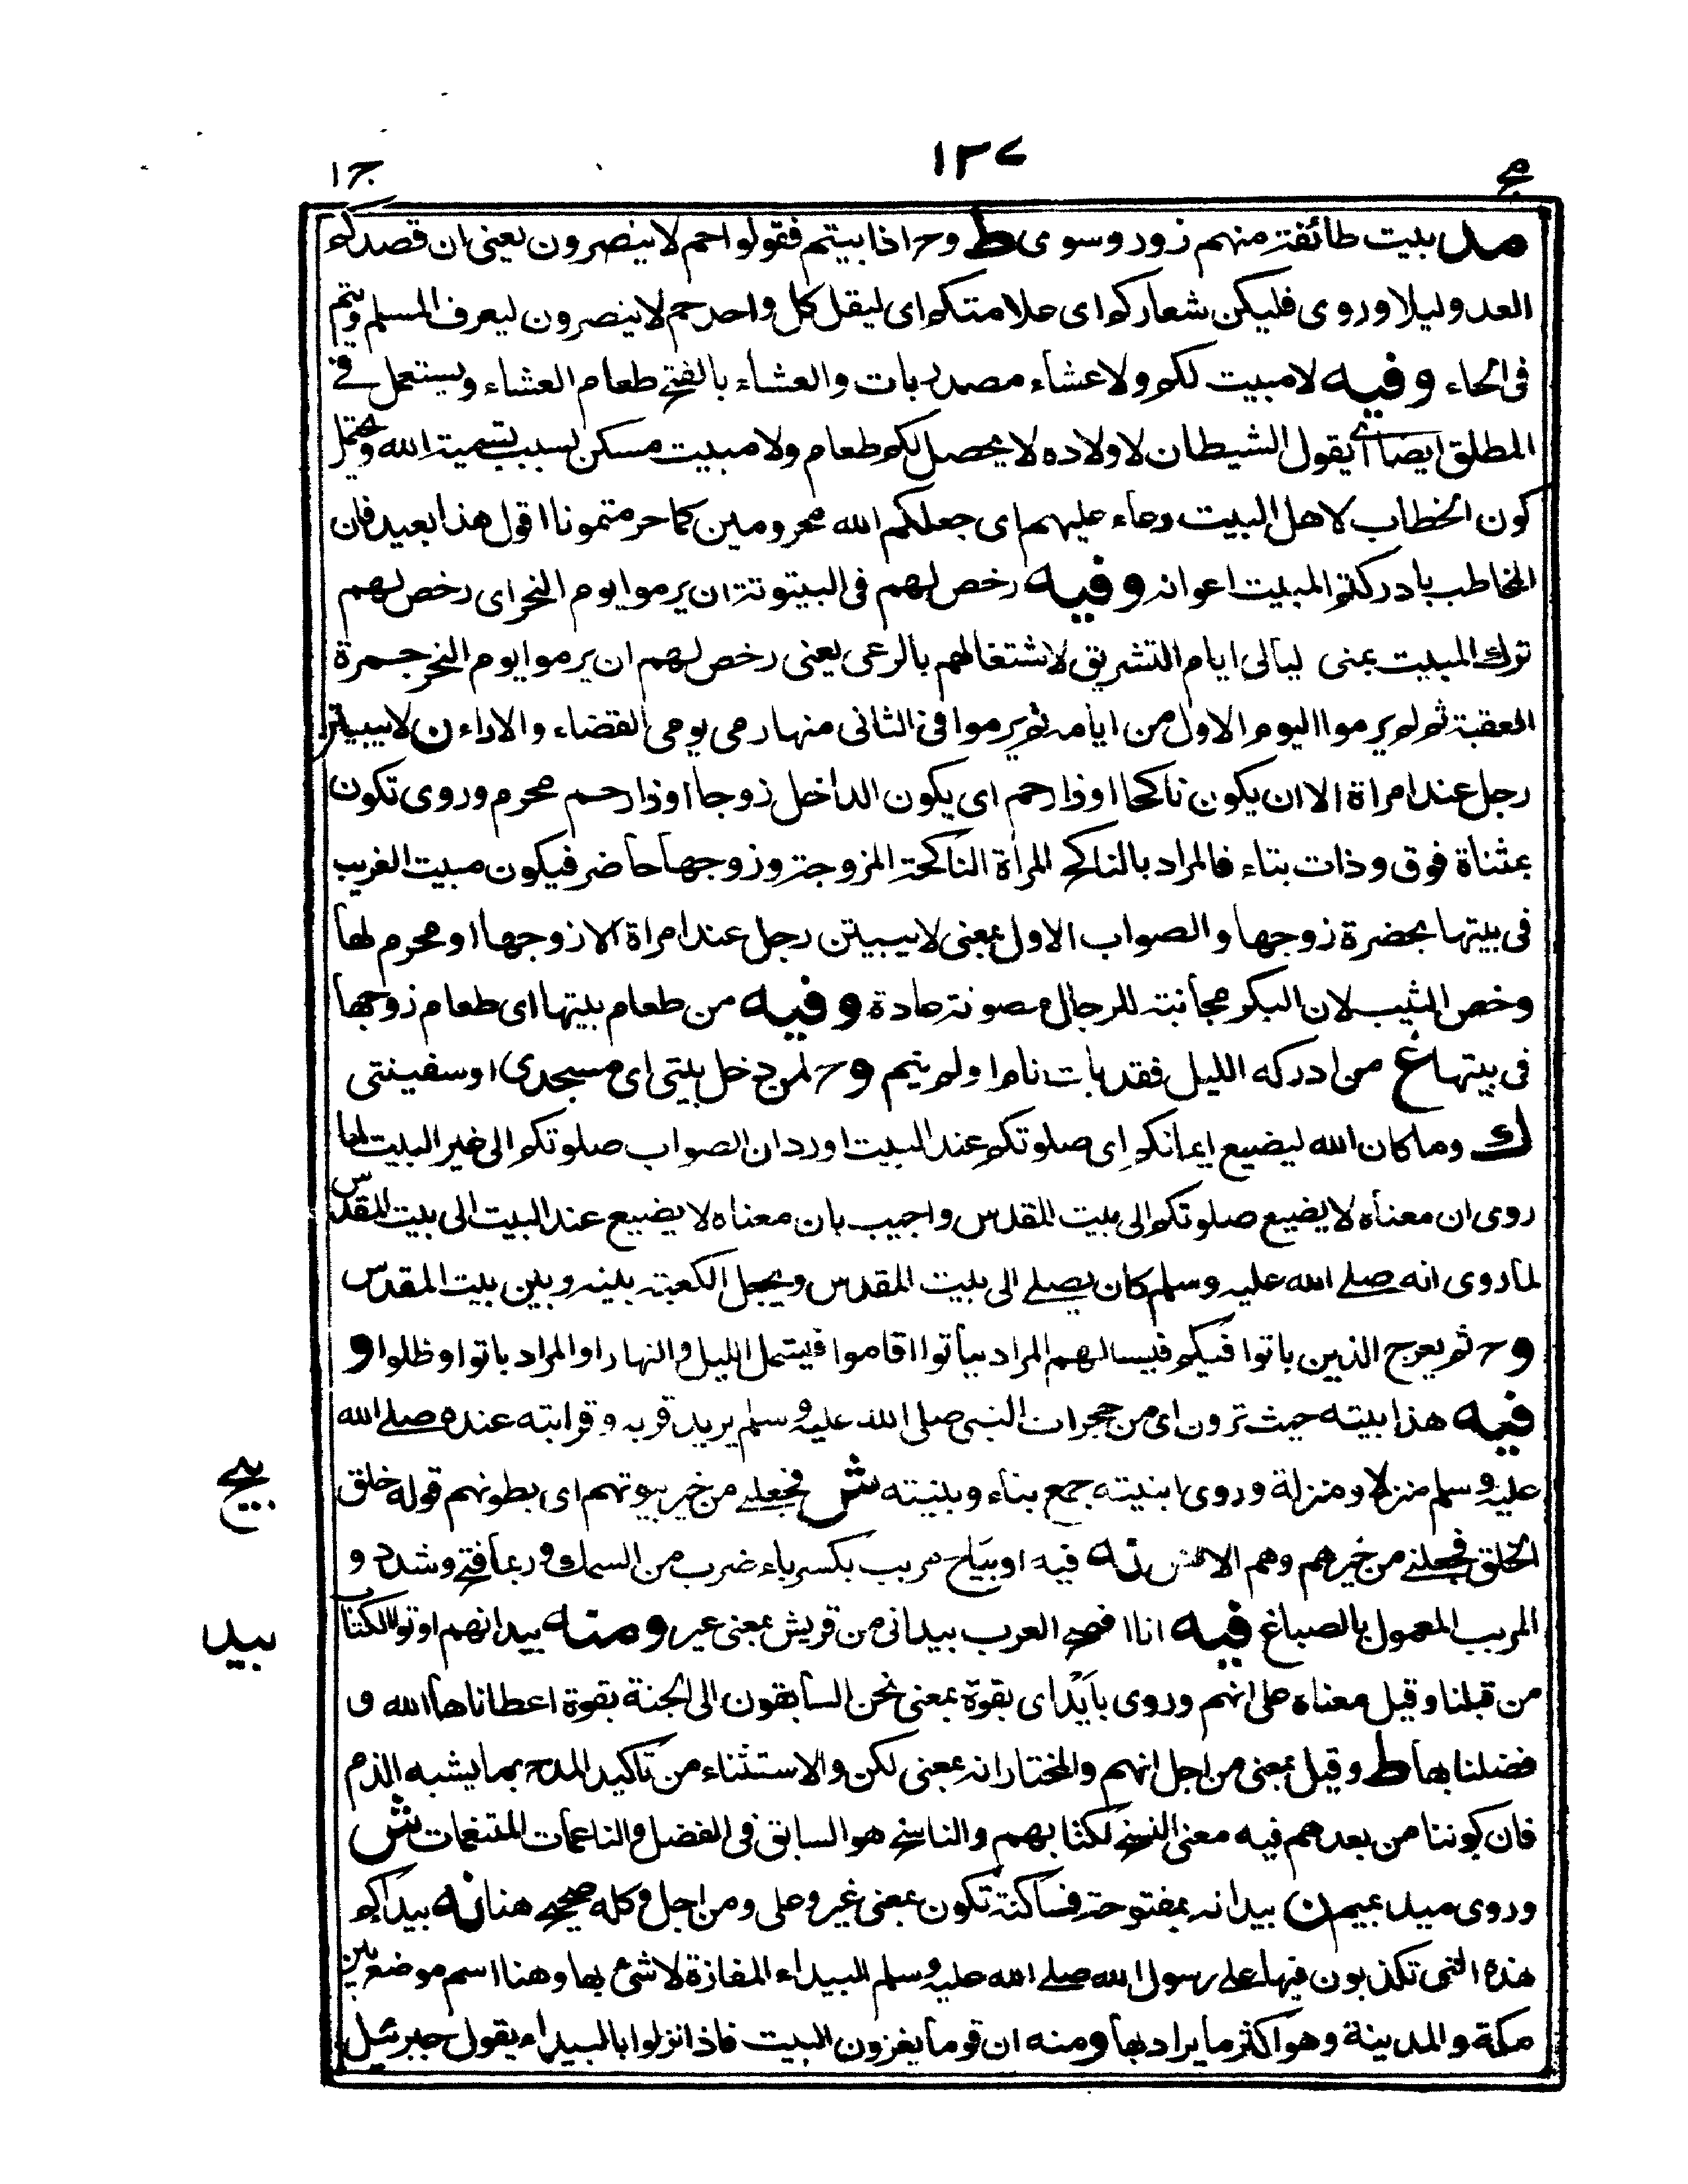 مج
١٣٧
ج١
مد بيت طائفة منهم زور وسوى ط وح اذا بيتم فقولوا حم لا ينصرون يعنى ان قصدكم
العدو ليلا وروى فليكن شعاركم اى علامتكم اى ليقل كل واحد حم لا ينصرون ليعرف المسلم ويتم
فى الحاء وفيه لا مبيت لكم ولا عشاء مصدر بات والعشاء بالفتح طعام العشاء ويستعمل فى
المطلق ايضا اى يقول الشيطان لاولاده لا يحصل لكم طعام ولا مبيت مسكن بسبب تسمية الله ويحتمل
كون الخطاب لاهل البيت دعاء عليهم اى جعلكم الله محرومين كما حرمتمونا اقول هذا بعيد فان
المخاطب بادركتم المبيت اعوانه وفيه رخص لهم فى البيتوتة ان يرموا يوم النحر اى رخص لهم
ترك المبيت بمنى ليالى ايام التشريق لاشتغالهم بالرعى يعنى رخص لهم ان يرموا يوم النحر جمرة
العقبة ثم لم يرموا اليوم الاول من ايامه ثم يرموا فى الثانى منها رمى يومى القضاء والاداء ن لا يبيتن
رجل عند امراة الا ان يكون ناكحا او ذا رحم اى يكون الداخل زوجا او ذا رحم محرم وروى تكون
بمثناة فوق وذات بتاء فالمراد بالناكح المراة الناكحة المزوجة وزوجها حاضر فيكون مبيت الغريب
فى بيتها بحضرة زوجها والصواب الاول بمعنى لا يبيتن رجل عند امراة الا زوجها او محرم لها
وخص الثيب لان البكر مجانبة للرجال مصونة عادة وفيه من طعام بيتها اى طعام زوجها
فى بيتها غ من ادركه الليل فقد بات نام او لم ينم وح لمن دخل بيتى اى مسجدى او سفينتى
ك وما كان الله ليضيع ايمانكم اى صلوتكم عند البيت اورد ان الصواب صلوتكم الى غير البيت لما
روى ان معناه لا يضيع صلوتكم الى بيت المقدس واجيب بان معناه لا يضيع عند البيت الى بيت المقدس
لما روى انه صلى الله عليه وسلم كان يصلى الى بيت المقدس ويجعل الكعبة بينه وبين بيت المقدس
وح ثم يعرج الذين باتوا فيكم فيسالهم المراد بباتوا اقاموا فيشمل الليل والنهار او المراد باتوا وظلوا و
فيه هذا بيته حيث ترون اى من حجرات النبى صلى الله عليه وسلم يريد قربه وقرابته عنده صلى الله
عليه وسلم منزلا ومنزلة وروى ابنيته جمع بناء وبنيته ش فجعلنى من خير بيوتهم اى بطونهم قوله خلق
الخلق فجعلنى من خيرهم وهم الانس نه فيه او بياح مربب بكسر باء ضرب من السمك وربما فتح وشدد و
بيح
المربب المعمول بالصباغ فيه انا افصح العرب بيد انى من قريش بمعنى غير ومنه بيد انهم اوتوا الكتاب
بيد
من قبلنا وقيل معناه على انهم وروى بايد اى بقوة بمعنى نحن السابقون الى الجنة بقوة اعطاناها الله و
فضلنا بها ط وقيل بمعنى من اجل انهم والمختار انه بمعنى لكن والاستثناء من تاكيد المدح بما يشبه الذم
فان كوننا من بعدهم فيه معنى النسخ لكتابهم والناسخ هو السابق فى الفضل والناعمات المتنعمات ش
وروى ميد بميم ن بيد انه بمفتوحة فساكنة تكون بمعنى غير وعلى ومن اجل وكله صحيح هنا نه بيداكم
هذه التى تكذبون فيها على رسول الله صلى الله عليه وسلم البيداء المفازة لا شئ بها وهنا اسم موضع بين
مكة والمدينة وهو اكثر ما يراد بها ومنه ان قوما يغزون البيت فاذا نزلوا بالبيداء يقول جبرئيل